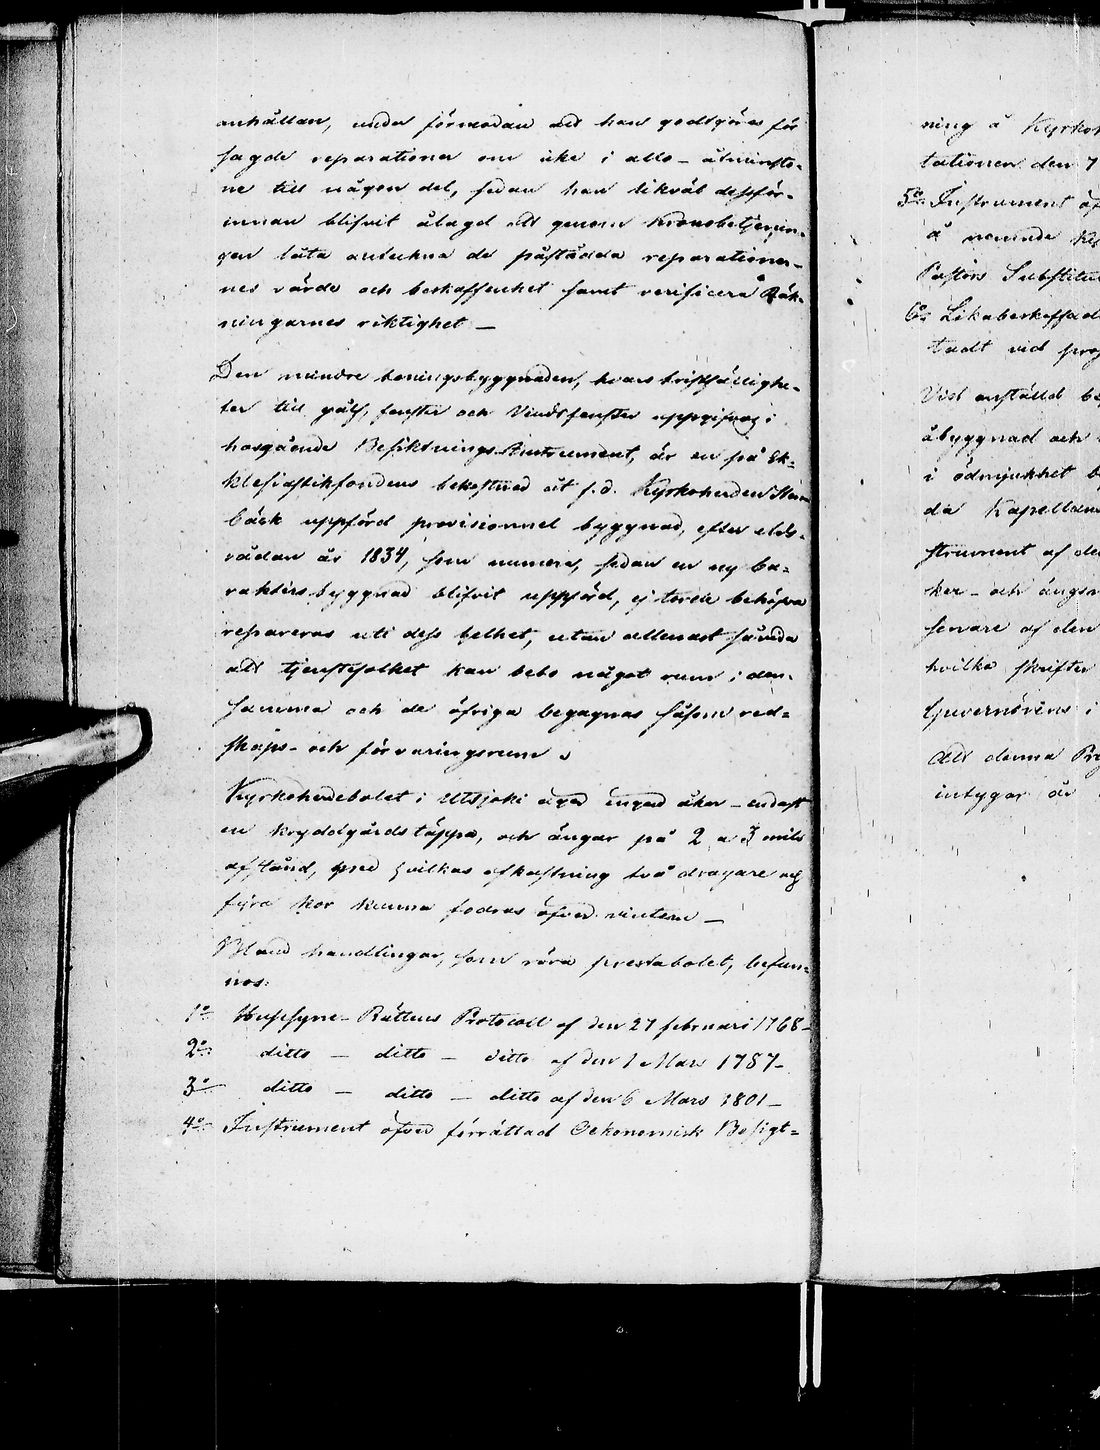 anhållan, under förmodan att han godtgöres för
sagde reparationer om icke i allo – åtminsto-
ne till någon del, sedan han likväl dessför-
innan blifvit ålagd att genom Kronobetjenin-
gen låta anteckna de påstådda reparationer-
nes värde och beskaffenhet samt verificera Räk-
ningarnes riktighet –
Den mindre boningsbyggnaden, hvars bristfällighe-
ter till golf, fenster och Vindsfenster uppgifvas i
hosgående Besiktnings-Instrument, är en på Ek-
klesiastikfondens bekostnad åt f.d. Kyrkoherden
bäck uppförd provisionnel byggnad, efter elds-
vådan år 1834, som numera, sedan en ny ka-
raktersbyggnad blifvit uppförd, ej torde behöfva
repareras uti dess helhet, utan allenast såvida
att tjenstefolket kan bebo något rum i den-
samma och de öfriga begagnas såsom red-
skaps- och förvaringsrum.
Kyrkoherdebolet i Utsjoki eger ingen åker – endast
en kryddgårdstäppa, och ängar på 2 a 3 mils
afstånd, med hvilkas afkastning två dragare och
fyra kor kunna fodras öfver vintern –
Bland handlingar, som röra prestabolet, befun-
nos:
1o Huussyns-Rättens Protocoll af den 27 februari 1768 –
2o ditto – ditto – ditto af den 1 Mars 1787 –
3o ditto – ditto – ditto af den 6 Mars 1801 –
4o Instrument öfver förrättad Oekonomisk Besigt-
ning å
tationen den 7
5o Instrument
å nämnde
Pastors
6o
tadt vid
Vid anställd
åbyggnad och
i ödmjukhet
da
strument af
ker- och
senare af den
hvilka skrifter
Guvernörens i
Att denna
intygar år